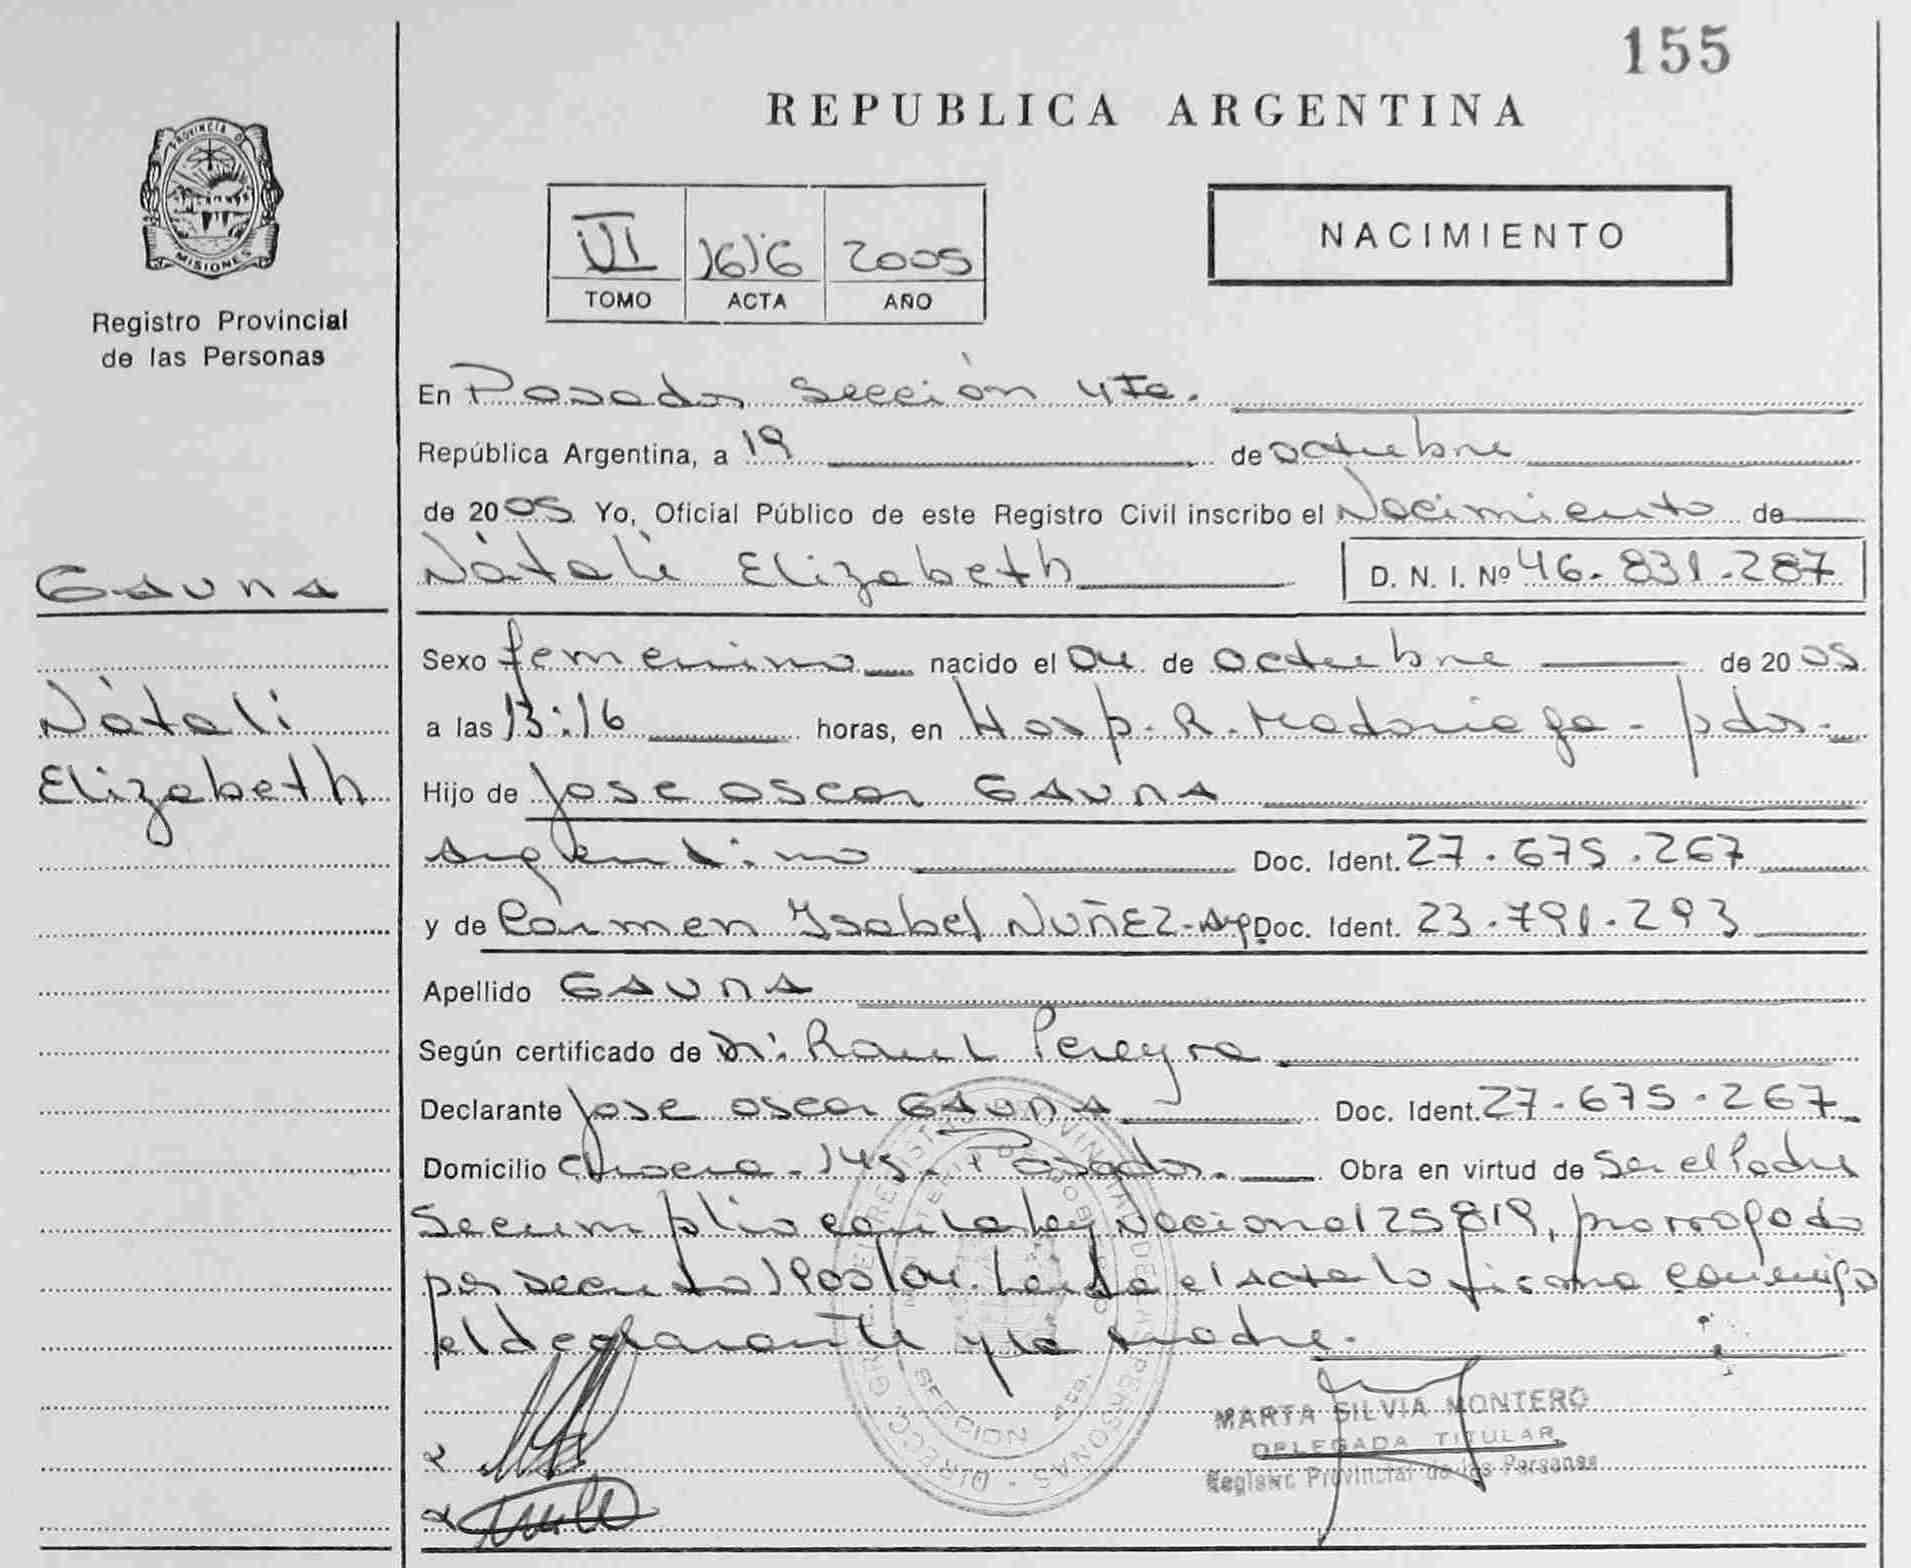 155
REPUBLICA ARGENTINA
PROVINCIA DE
MISIONES
Registro Provincial
de las Personas
VI 1616 2005
TOMO ACTA AÑO
NACIMIENTO
En Posadas Sección 4ta.
República Argentina, a 19 de octubre
de 2005 Yo, Oficial Público de este Registro Civil inscribo el Nacimiento de
GAUNA
Nátali Elizabeth D. N. I. Nº 46.831.287
Sexo femenino nacido el 04 de octubre de 2005
Nátali
a las 13:16 horas, en Hosp. R. Madariaga - pdas-
Elizabeth
Hijo de Jose Oscar GAUNA
Argentino Doc. Ident. 27.675.267
y de Carmen Ysabel NUÑEZ-Arg Doc. Ident. 23.791.293
Apellido GAUNA
Según certificado de Dr. Raul Pereyra
Declarante Jose Oscar GAUNA Doc. Ident. 27.675.267
Domicilio 145 - Posadas. Obra en virtud de Ser el Padre
Se cumplio con la Ley Nacional 25819, prorrogado
por Decreto Leida el Acta la firma conmigo
el declarante y la madre.
MARTA SILVIA MONTERO
DELEGADA TITULAR
Registro Provincial de las Personas
SECCION 4ta.